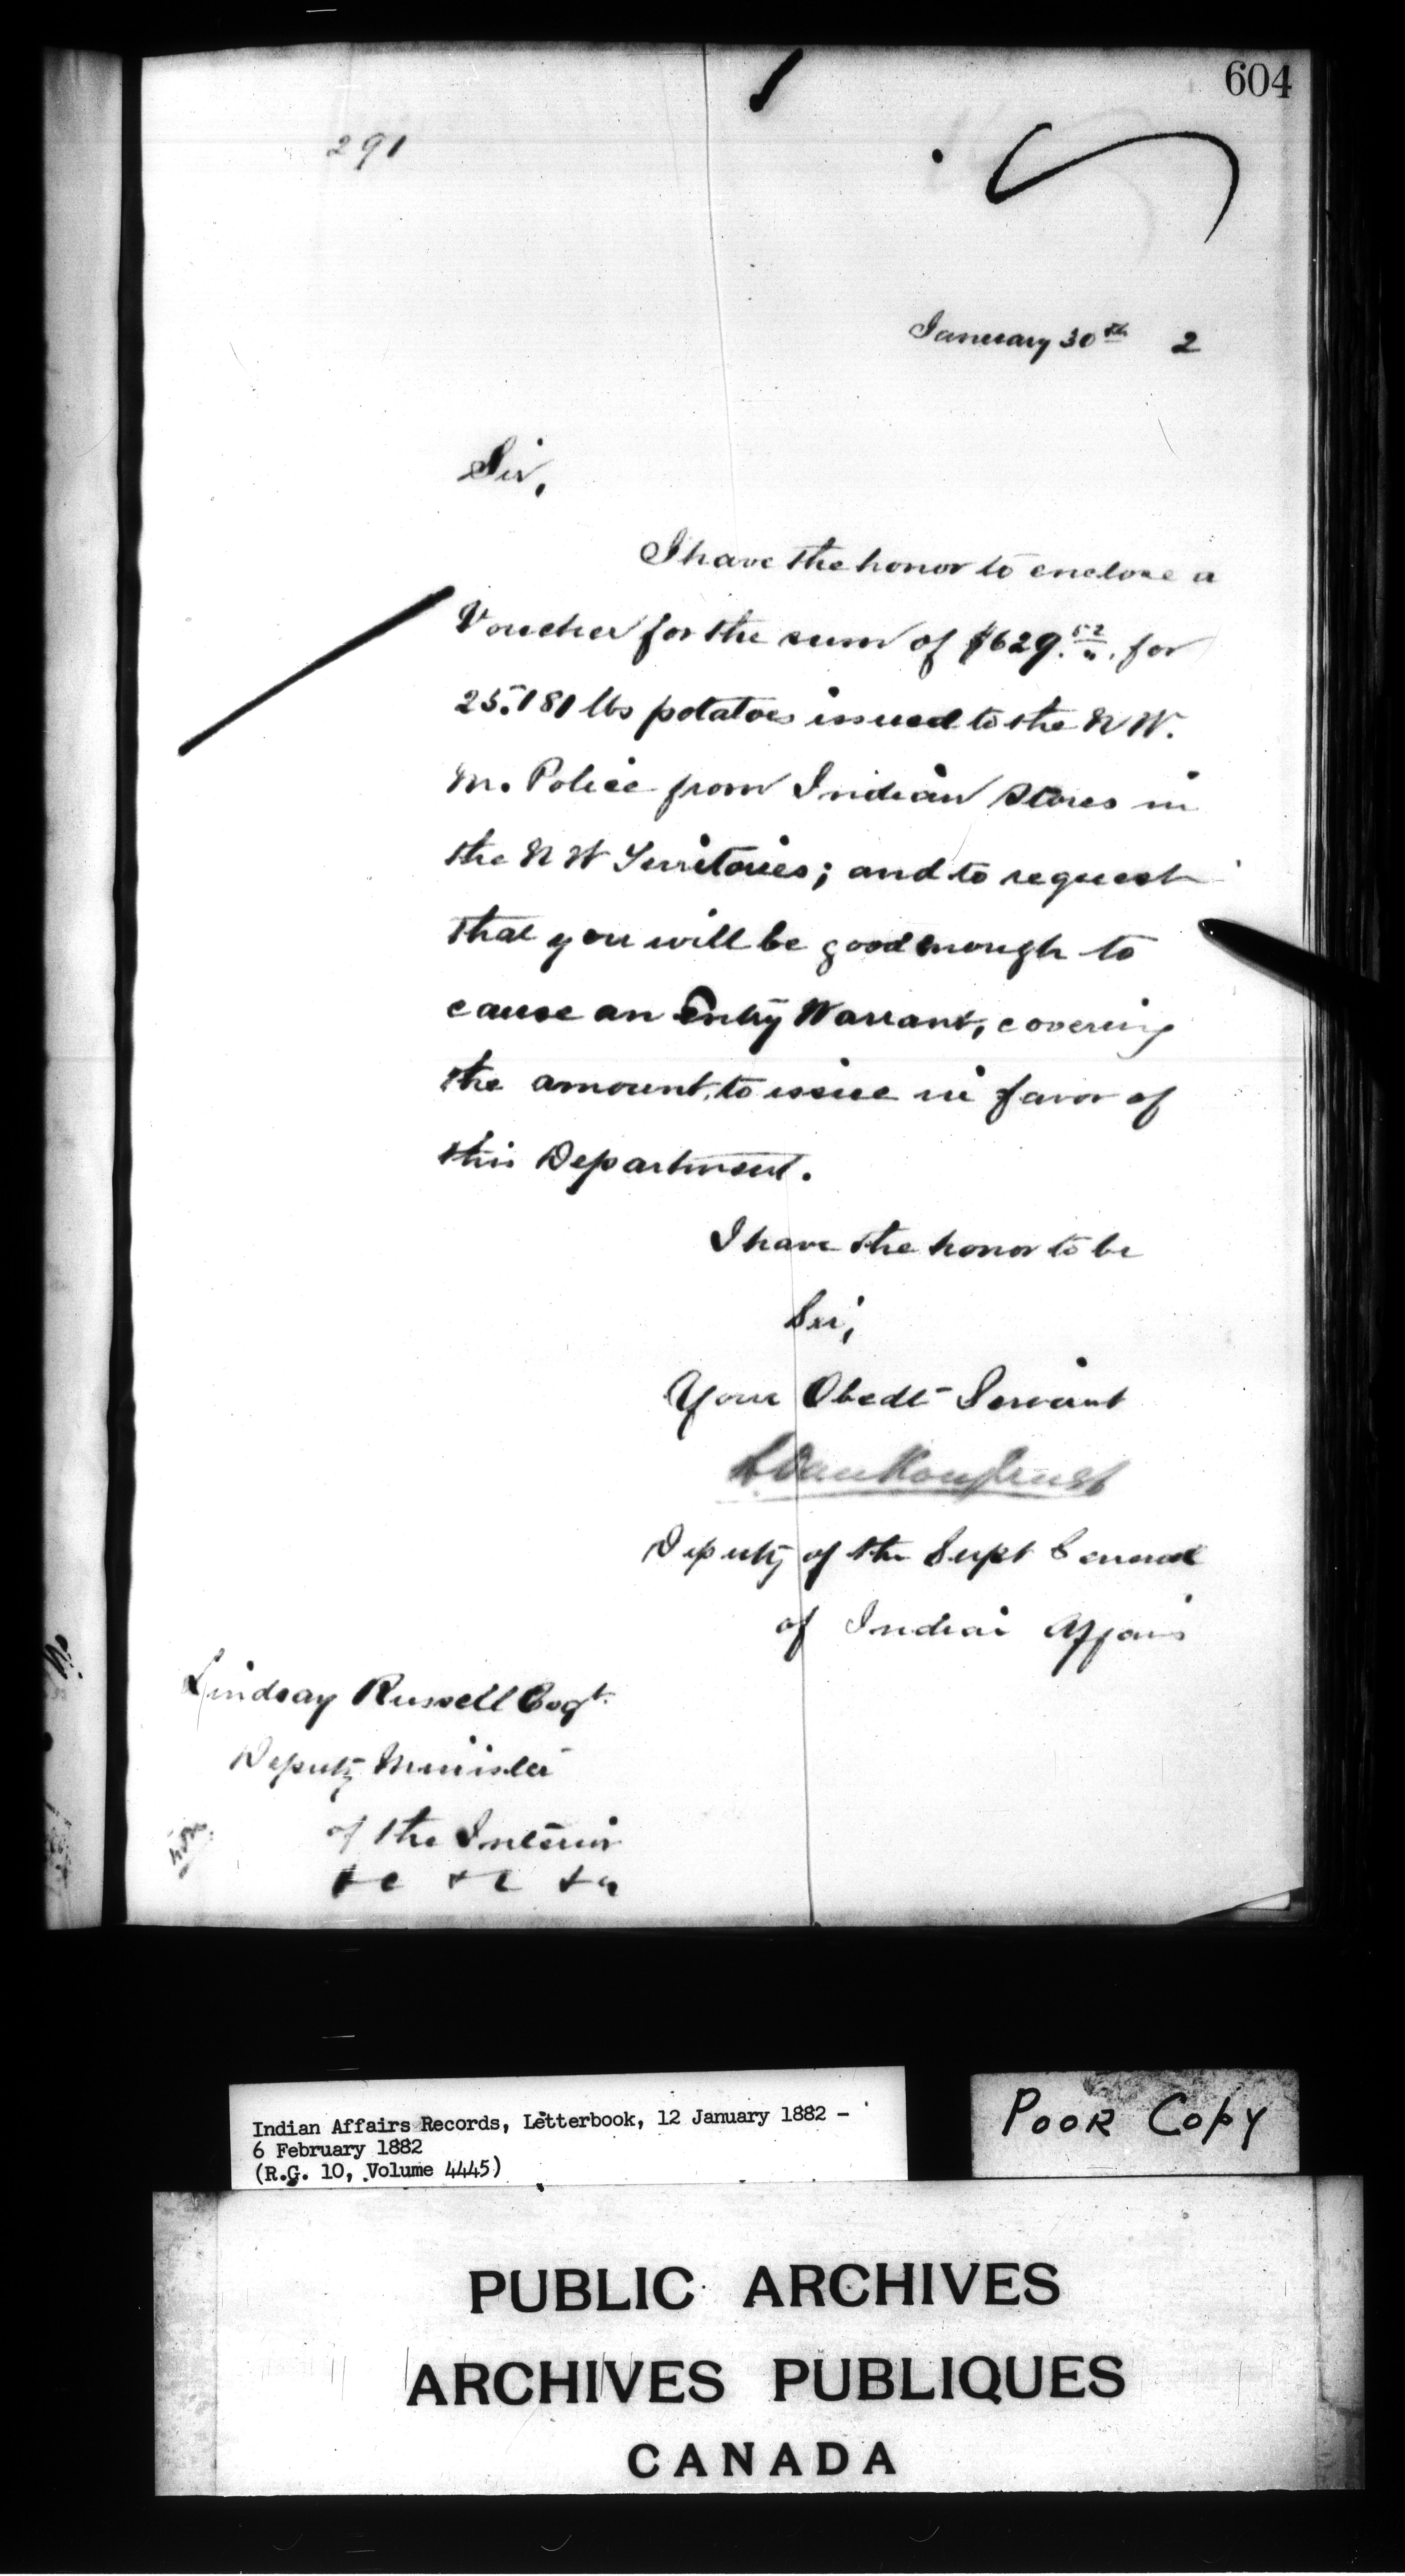 604
291
January 30th 2
Sir,
I have the honor to enclose a
Voucher for the sum of $629.52/". for
25.181 lbs potatoes issued to the N W.
M. Police from Indian Stores in
the N W Territories; and to request
that you will be good enough to
cause an Entry Warrant, covering
the amount, to issue in favor of
this Department.
I have the honor to be
Sir,
Your Obedt Servant
L Vankoughnet
Deputy of the Supt General
of Indian Affairs
Lindsay Russell Esqr.
Deputy Minister
of the Interior
&c &c &c
Indian Affairs Records, Letterbook, 12 January 1882 -
6 February 1882
(R.G. 10, Volume 4445)
POOR COPY
PUBLIC ARCHIVES
ARCHIVES PUBLIQUES
CANADA